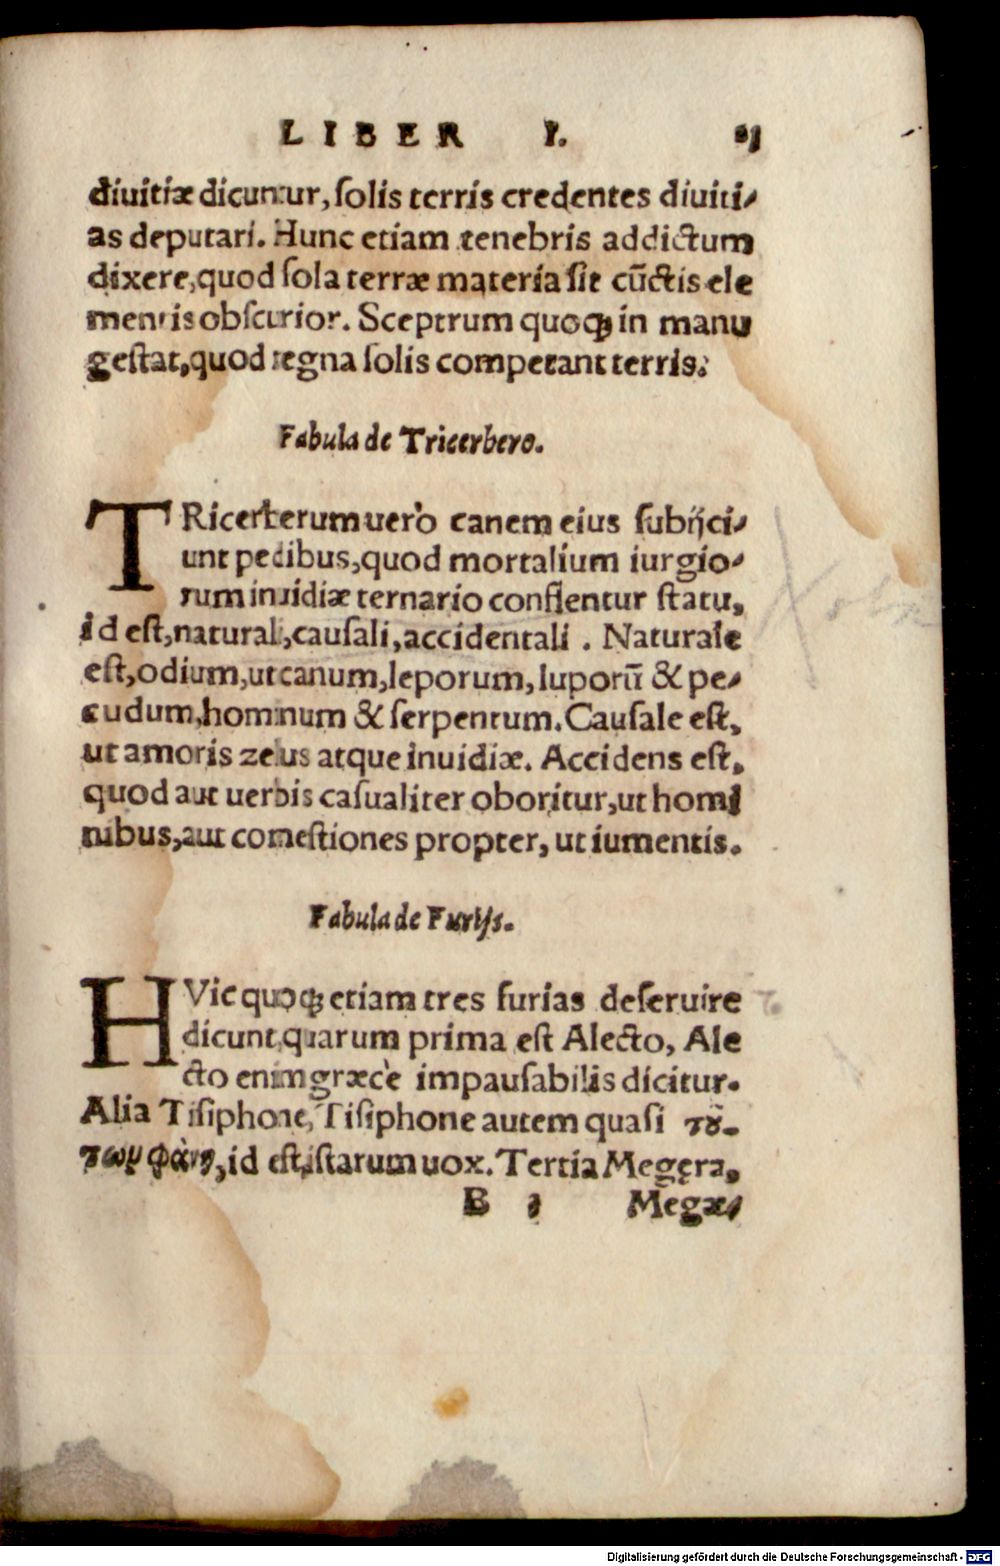 LIBER I.
diuitiæ dicuntur, solis terris credentes diuiti-
as deputari. Hunc etiam tenebris addictum
dixere, quod sola terræ materia sit cūctis ele
mentis obscurior. Sceptrum quoqꝫ in manu
gestat, quod regna solis competant terris.
Fabula de Tricerbero.
TRicerberum uerò canem eius subijci-
unt pedibus, quod mortalium iurgio-
rum inuidiæ ternario conflentur statu,
id est, naturali, causali, accidentali. Naturale
est, odium, ut canum, leporum, luporū & pe-
cudum, hominum & serpentum. Causale est,
ut amoris zelus atque inuidiæ. Accidens est,
quod aut uerbis casualiter oboritur, ut homi
nibus, aut comestiones propter, ut iumentis.
Fabula de Furijs.
HVic quoqꝫ etiam tres furias deseruire
dicunt, quarum prima est Alecto, Ale
cto enim græcè impausabilis dicitur.
Alia Tisiphone, Tisiphone autem quasi τȣ̃-
των φὰνη, id est, istarum uox. Tertia Megęra,
B Megæ-
Digitalisierung gefördert durch die Deutsche Forschungsgemeinschaft - DFG